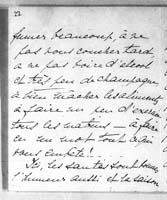 22
aimer beaucoup, à ne
pas vous coucher tard
à ne pas boire d'alcool
et très peu de champagne
à bien macher les aliments
à faire un peu d'exercice
tous les matins — à faire
en un mot tout ce qui
vous embête!
Ici, les santés sont bonnes,
l'humeur aussi et la saison